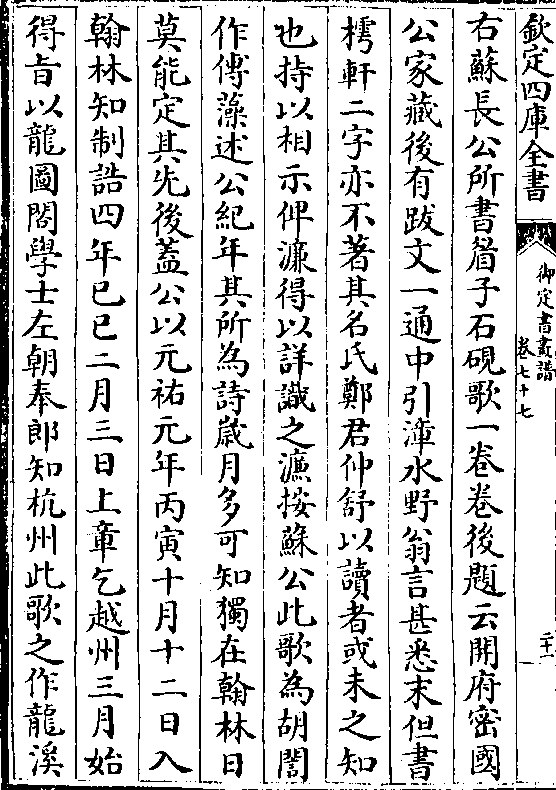 欽定四庫全書
御定書畫譜
卷七十七
二十一
右蘇長公所書睂子石硯歌一卷卷後題云開府密國
公家藏後有跋文一通中引漳水野翁言甚悉末但書
樗軒二字亦不著其名氏鄭君仲舒以讀者或未之知
也持以相示俾濂得以詳識之濂按蘇公此歌為胡誾
作傳藻述公紀年其所為詩歲月多可知獨在翰林日
莫能定其先後蓋公以元祐元年丙寅十月十二日入
翰林知制誥四年已已二月三日上章乞越州三月始
得㫖以龍圖閣學士左朝奉郎知杭州此歌之作龍溪